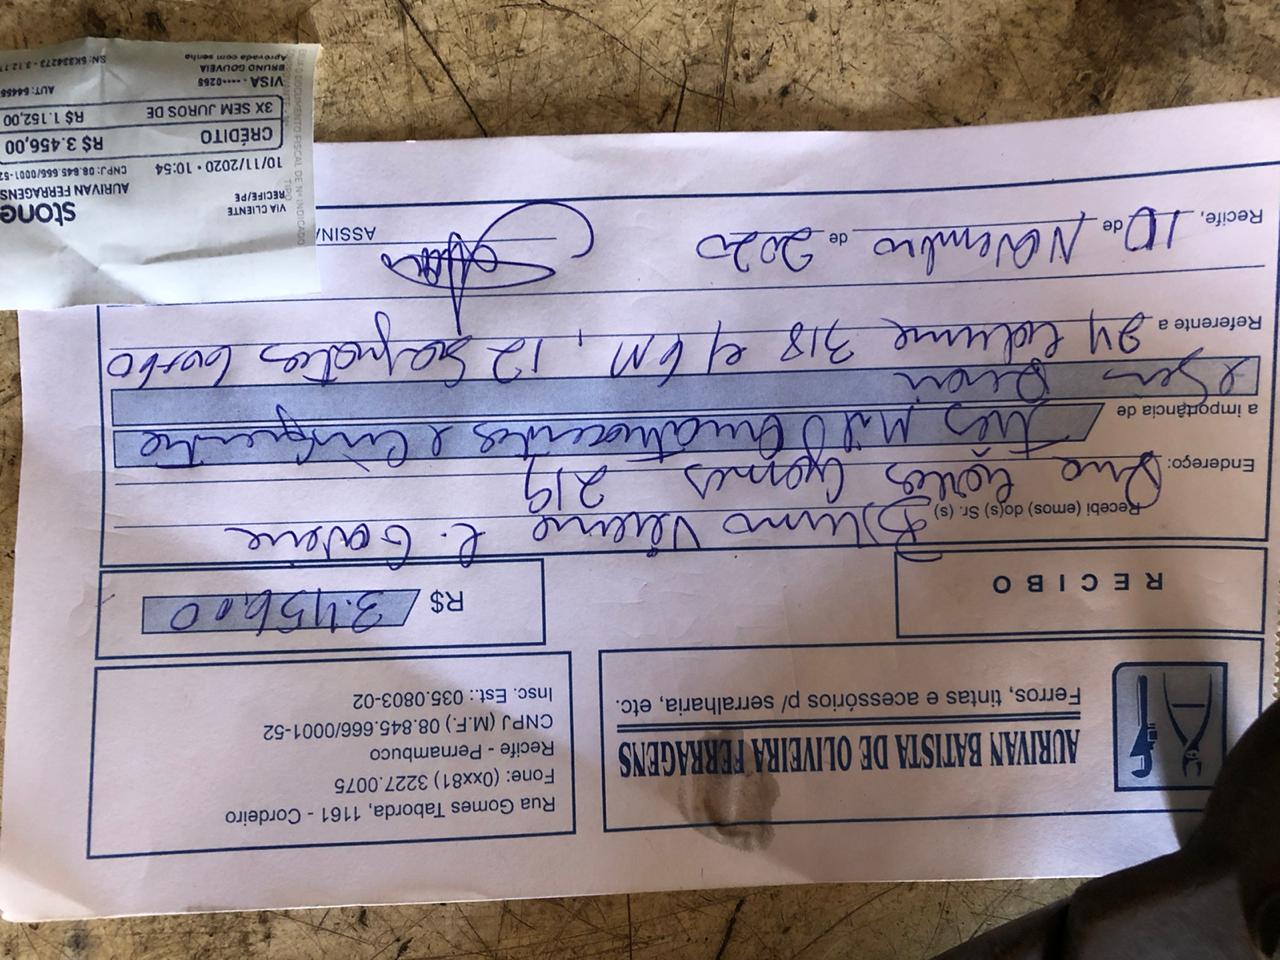 AURIVAN BATISTA DE OLIVEIRA FERRAGENS
Ferros, tintas e acessórios p/ serralharia, etc.
Rua Gomes Taborda, 1161 - Cordeiro
Fone: (0xx81) 3227.0075
Recife - Pernambuco
CNPJ (M.F.) 08.845.666/0001-52
Insc. Est.: 035.0803-02
RECIBO
R$ 3.456,00
Recebi (emos) do(s) Sr. (s) Bruno
Endereço: Rua Carlos Gomes 219
a importância de três Mil Quatrocentos e Cinquenta
e Seis Reai
Referente a 24 Coluna 318 c/ 6M, 12 Sapatas 60x60
Recife, 10 de Novembro de 2020
ASSINA
stone
VIA CLIENTE
RECIFE/PE
AURIVAN FERRAGENS
CNPJ: 08.845.666/0001-52
10/11/2020 • 10:54
CRÉDITO R$ 3.456,00
3X SEM JUROS DE R$ 1.152,00
VISA - ••••0265
AUT:
BRUNO GOUVEIA
Aprovada com senha
SN: 6K334273 - 3.12.1